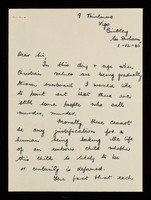 9 Thirlmere
Vigo
Birtley
Co Durham
1-12-86
Dear Sir,
In this day & age when
Christian values are being gradually
thrown overboard I would like
to point out that there are
still some people who call
murder, murder.
Morally there cannot
be any justification for a
human being taking the life
of an unborn child whether
this child is likely to be
or maternity is deformed.
The fact that each